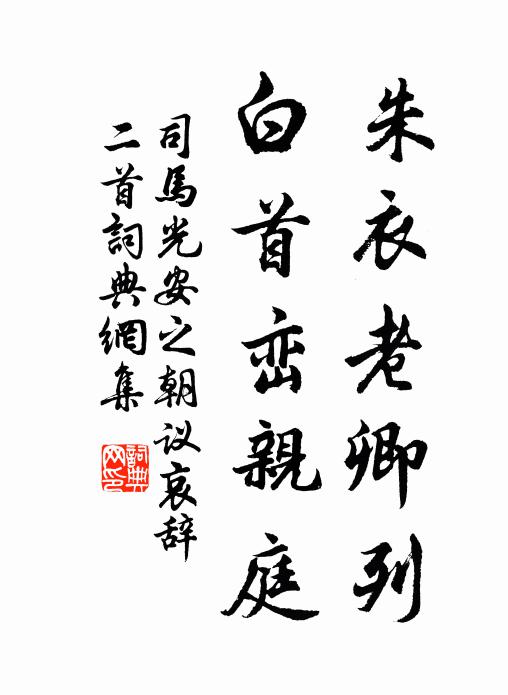 朱衣老卿列
白首峦親庭
司馬光安之朝议哀辞
二首詞典網集
詞典网印